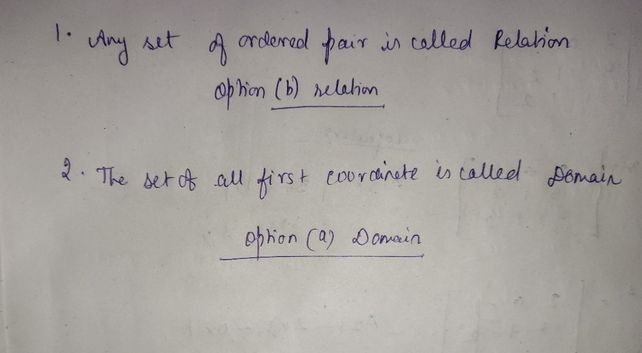 1. Any set of ordered pair is called Relation
option (b) relation
2. The set of all first coordinate is called Domain
option (a) Domain